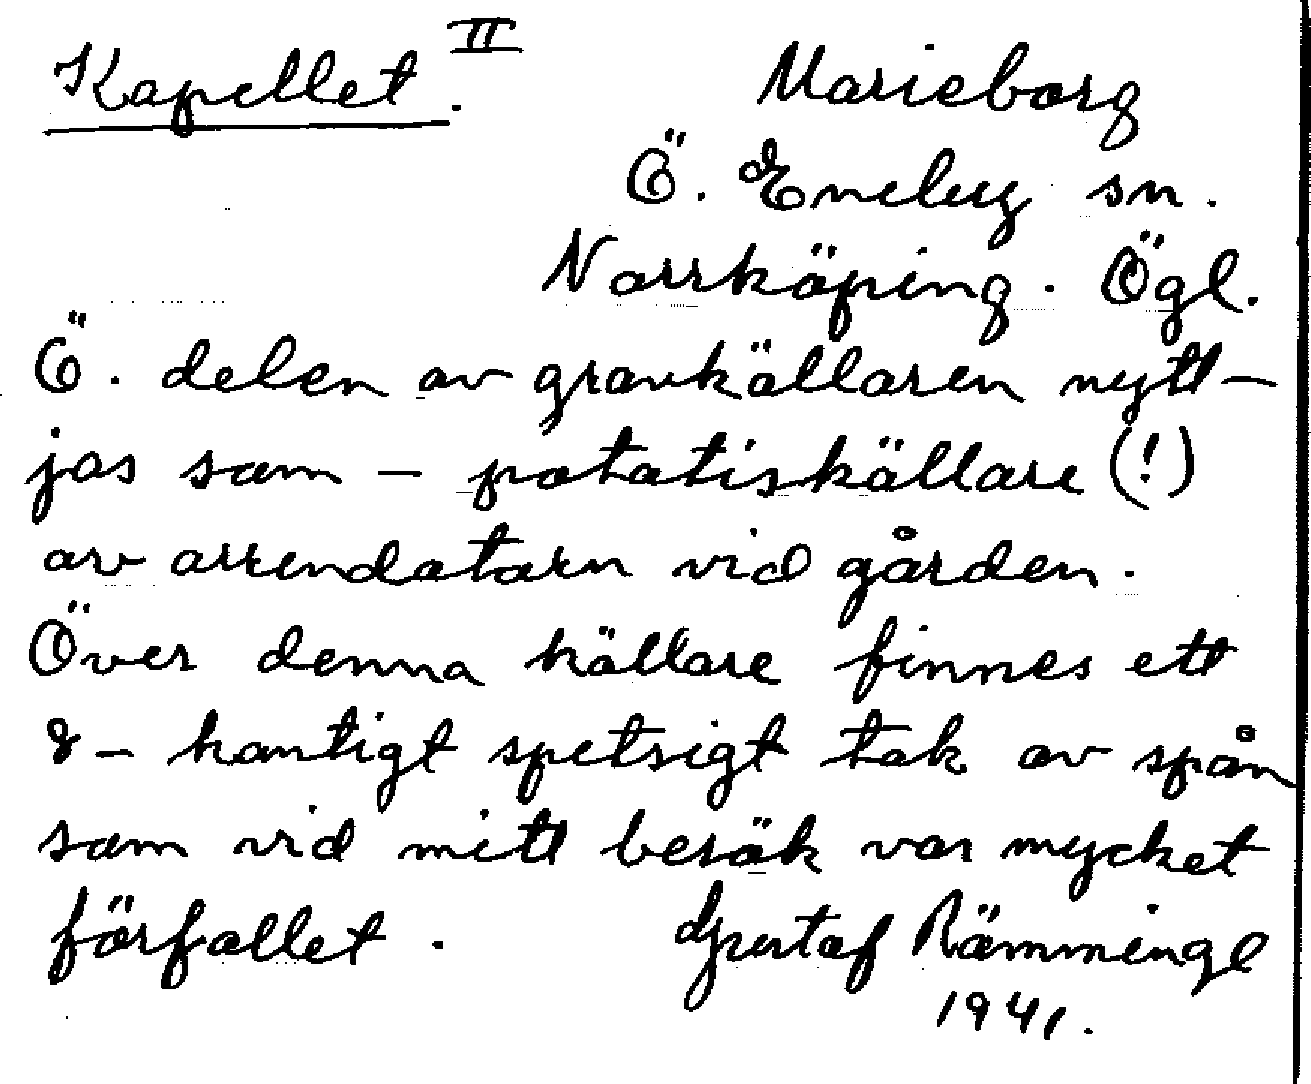 Kapellet II.
Marieborg
Ö. Eneby sn.
Norrköping. Ögl.
Ö. delen av gravkällaren nytt-
jas som — potatiskällare (!)
av arrendatorn vid gården.
Över denna källare finnes ett
8-kantigt spetsigt tak av spån
som vid mitt besök var mycket
förfallet. Gustaf
1941.